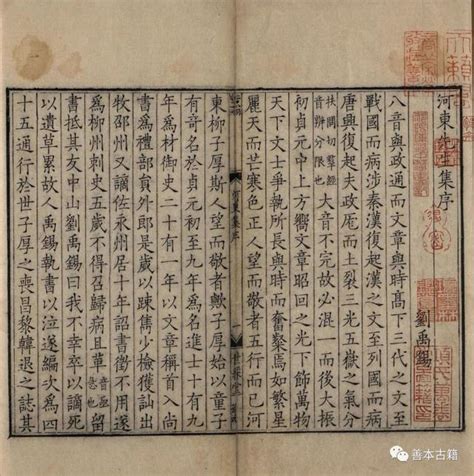 河東先生集序
劉禹錫
八音與政通而文章與時高下三代之文至
戰國而病涉秦漢復起漢之文至列國而病
唐興復起夫政厖而土裂三光五嶽之氣分
扶問切羣經音辨分限也大音不完故必混一而後大振
初貞元中上方嚮文章昭回之光下飾萬物
天下文士爭執所長與時而奮粲焉如繁星
麗天而芒寒色正人望而敬者五行而已河
東柳子厚斯人望而敬者歟子厚始以童子
有奇名於貞元初至九年爲名進士十有九
年爲材御史二十有一年以文章稱首入尚
書爲禮部員外郎是歲以踈雋少檢獲訕出
牧邵州又謫佐永州居十年詔書徵不用遂
爲柳州刺史五歲不得召歸病且革音亟急也留
書抵其友中山劉禹錫曰我不幸卒以謫死
以遺草累故人禹錫執書以泣遂編次爲四
十五通行於世子厚之喪昌黎韓退之誌其
善本古籍